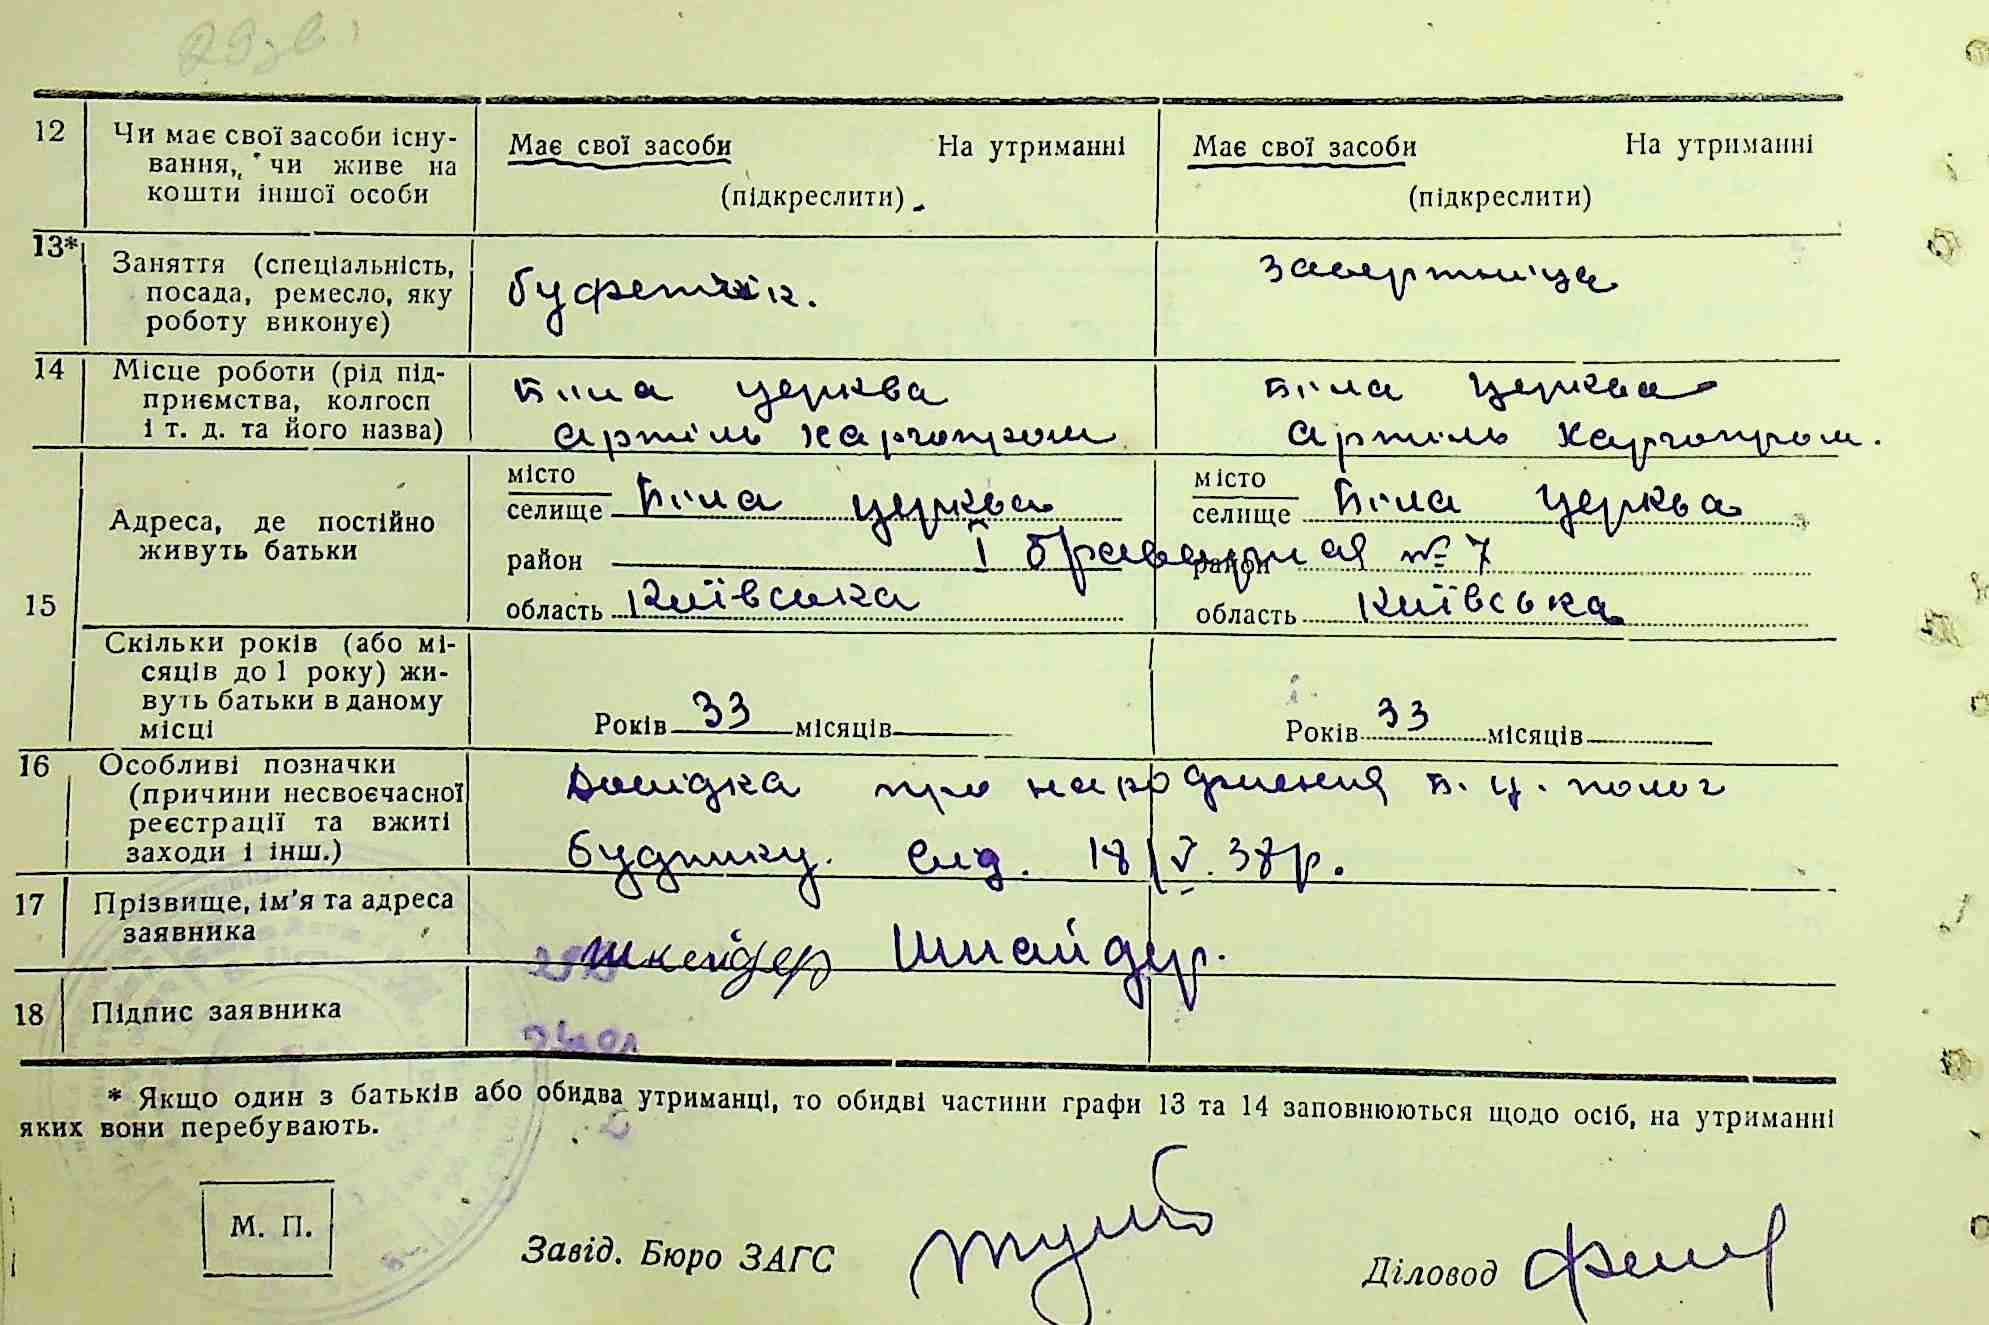 12 Чи має свої засоби існу-
вання, чи живе на
кошти іншої особи
Має свої засоби На утриманні
(підкреслити)
Має свої засоби На утриманні
(підкреслити)
13* Заняття (спеціальність,
посада, ремесло, яку
роботу виконує)
буфетчік.
завертниця
14 Місце роботи (рід під-
приємства, колгосп
і т. д. та його назва)
Біла церква
артіль харчопром
Біла церква
артіль харчопром.
15 Адреса, де постійно
живуть батьки
місто
селище Біла церква
район І
область Київська
місто
селище Біла церква
район № 7
область Київська
Скільки років (або мі-
сяців до 1 року) жи-
вуть батьки в даному
місці
Років 33 місяців
Років 33 місяців
16 Особливі позначки
(причини несвоєчасної
реєстрації та вжиті
заходи і інш.)
Довідка про народження Б. Ц. полог
будинку. від. 18/V. 38р.
17 Прізвище, ім'я та адреса
заявника
Шнайдер.
18 Підпис заявника
* Якщо один з батьків або обидва утриманці, то обидві частини графи 13 та 14 заповнюються щодо осіб, на утриманні
яких вони перебувають.
М. П.
Завід. Бюро ЗАГС
Діловод